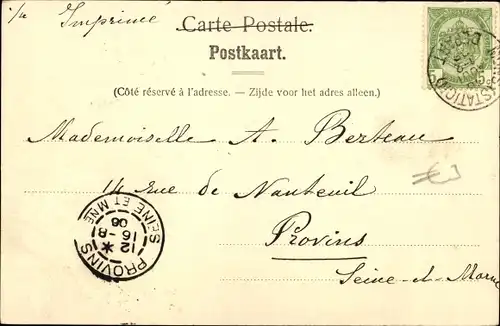 Imprimé
Carte Postale.
Postkaart.
(Côté réservé à l'adresse. — Zijde voor het adres alleen.)
Mademoiselle A. Berteau
14 rue de Nauteuil
Provins
Seine-et-Marne
PROVINS
SEINE ET MNE
12
16-8
06
5 5
STATIO